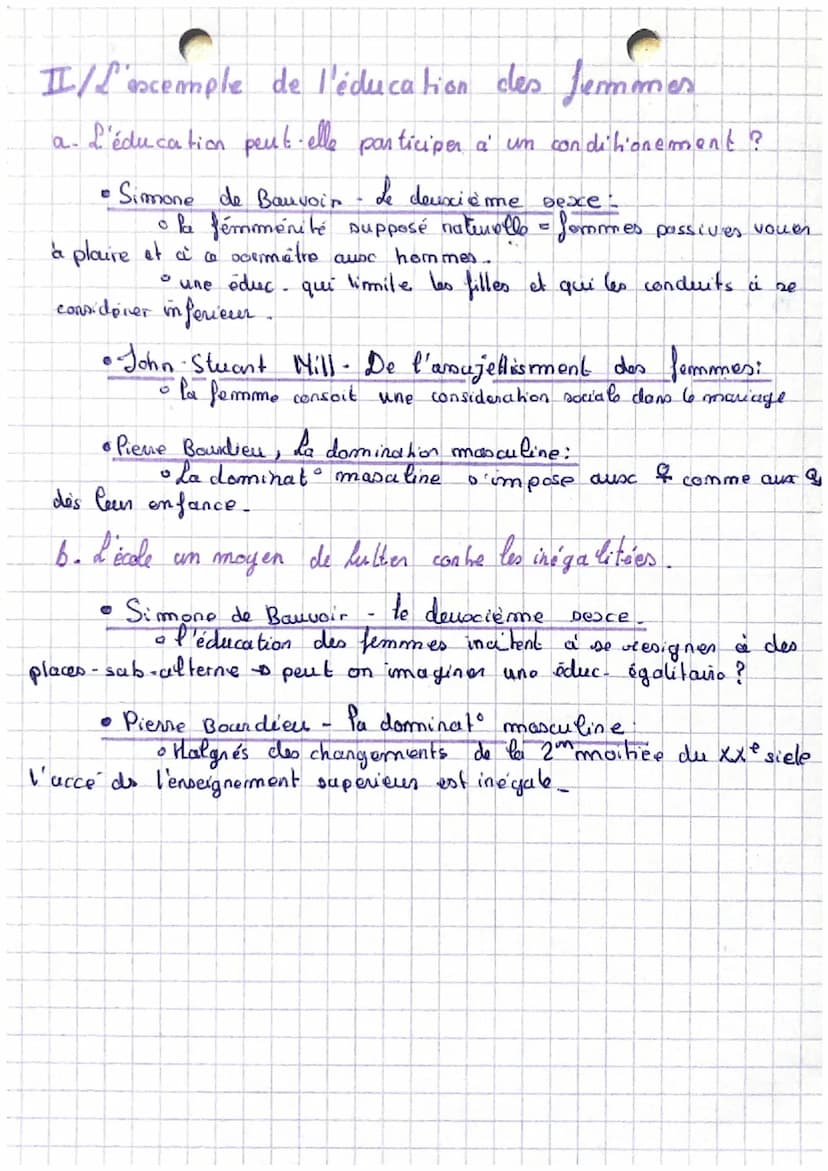 II/L'exemple de l'éducation des femmes
a. L'éducation peut-elle participer à un conditionement ?
• Simone de Bauvoir - Le deuxième sexe :
◦ la fémménité supposé naturelle = femmes passives vouer
à plaire et à ce soumêtre aux hommes.
◦ une éduc. qui limile les filles et qui les conduits à se
considérer inferieur.
• John-Stuart Mill - De l'assujettisment des femmes:
◦ la femme consoit une consideration sociale dans le mariage
• Pierre Bourdieu, La domination masculine:
◦ La dominat° masculine s'impose aux ♀ comme aux
dès leur enfance.
b. L'école un moyen de lutter contre les inégalitées.
• Simone de Bauvoir - le deuxcième sexce.
◦ l'éducation des femmes incitent à se resigner à des
places-sub-alterne → peut on imaginer une éduc- égalitaire ?
• Pierre Bourdieu - la dominat° masculine:
◦ Malgrés des changements de la 2ᵐ moitiée du XXᵉ siele
l'accé de l'enseignement superieur est inégale.